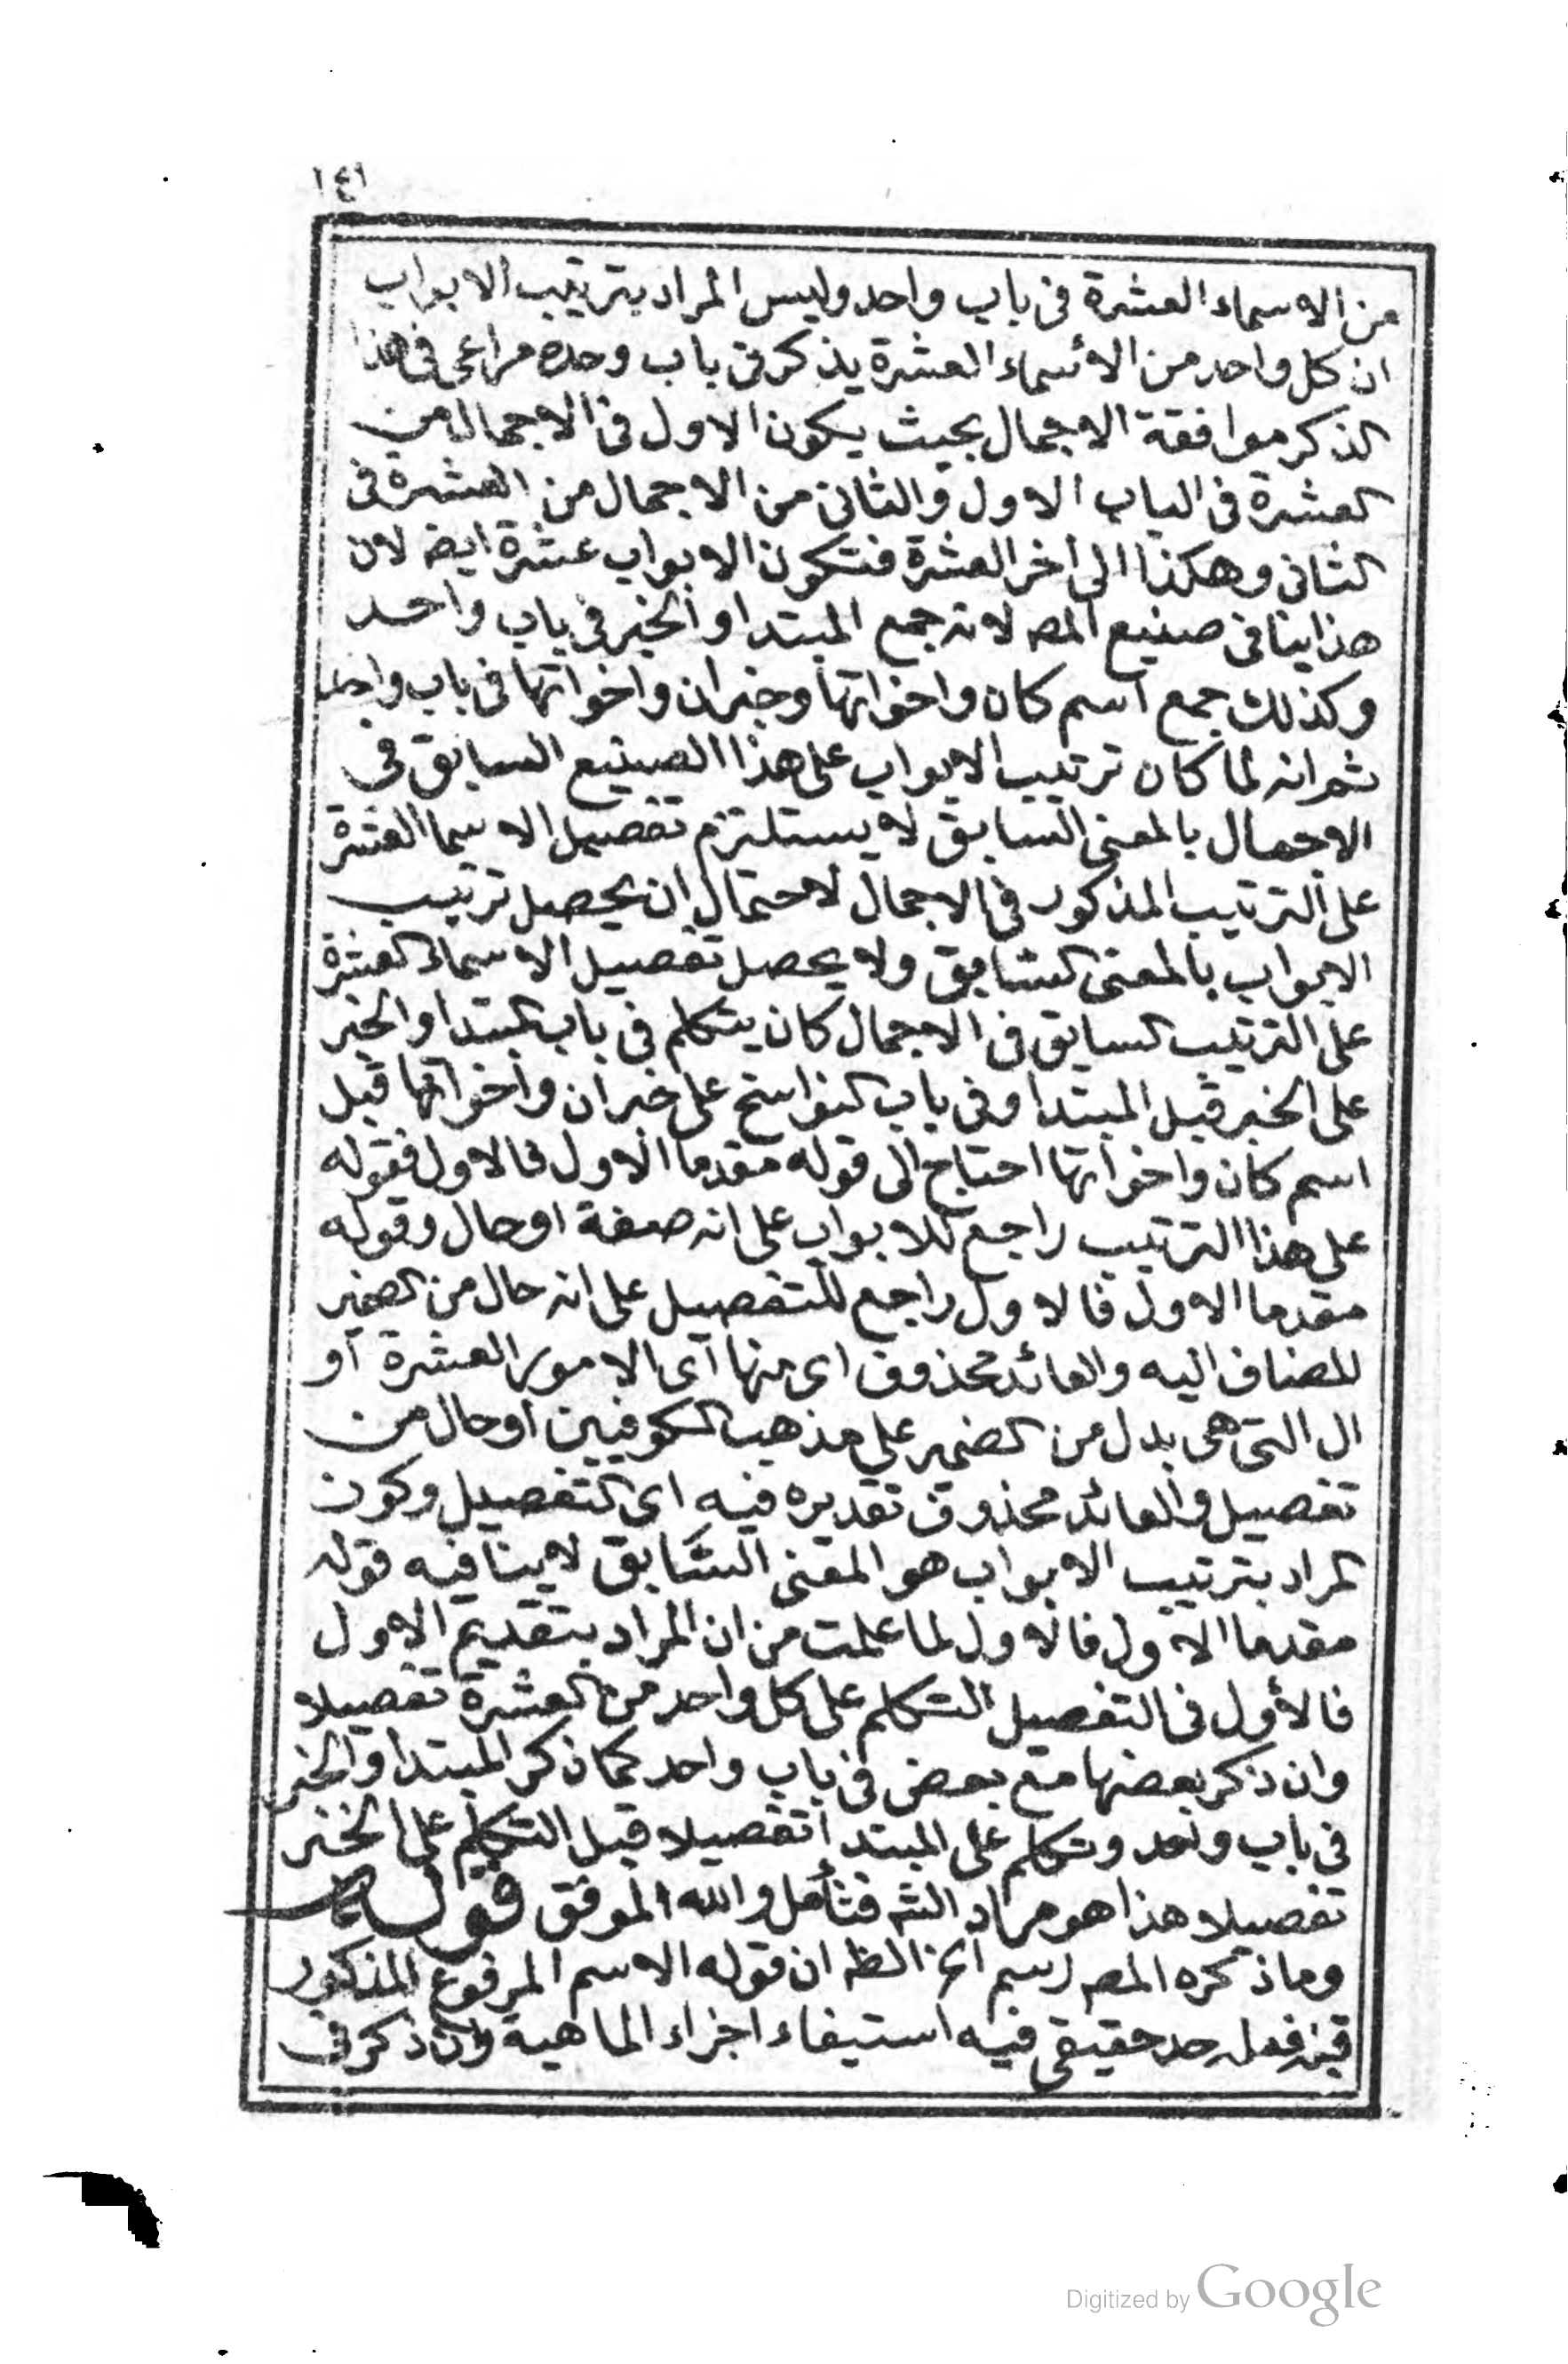 ١٤١
من الاسماء العشرة فى باب واحد وليس المراد بترتيب الابواب
ان كل واحد من الأسماء العشرة يذكر فى باب وحده مراعى فى هذا
الذكر موافقة الاجمال بحيث يكون الاول فى الاجمال من
العشرة فى الباب الاول والثانى من الاجمال من العشرة فى
الثانى وهكذا الى أخر العشرة فتكون الابواب عشرة ايضا لان
هذا ينافى صنيع المصـ لانه جمع المبتدا والخبر فى باب واحد
وكذلك جمع اسم كان واخواتها وخبران واخواتها فى باب واحد
ثم انه لما كان ترتيب الابواب على هذا الصنيع السابق فى
الاجمال بالمعنى السابق لا يستلزم تفصيل الاسما العشرة
على الترتيب المذكور فى الاجمال لاحتمال ان يحصل ترتيب
الابواب بالمعنى السابق ولا يحصل تفصيل الاسماء العشرة
على الترتيب السابق فى الاجمال كان يتكلم فى باب المبتدا والخبر
على الخبر قبل المبتدا وفى باب النواسخ على خبران واخواتها قبل
اسم كان واخواتها احتاج الى قوله مقدما الاول فالاول فقوله
على هذا الترتيب راجع للابواب على انه صفة او حال وقوله
مقدما الاول فالاول راجع للتفصيل على انه حال من الضمير
للمضاف اليه والعائد محذوف اى منها أى الامور العشرة أو
ال التى هى بدل من الضمير على مذهب الكوفيين أو حال من
تفصيل والعائد محذوف تقديره فيه اى التفصيل وكون
المراد بترتيب الابواب هو المعنى السابق لا ينافيه قوله
مقدما الاول فالاول لما علمت من ان المراد بتقديم الاول
فالأول فى التفصيل التكلم على كل واحد من العشرة تفصيلا
وان ذكر بعضها مع بعض فى باب واحد كما ذكر المبتدا والخبر
فى باب واحد وتكلم على المبتدأ تفصيلا قبل التكلم على الخبر
تفصيلا هذا هو مراد الشـ فتأمل والله الموفق قوله
وما ذكره المصـ رسم الخ الظـ ان قوله الاسم المرفوع المذكور
قبله فعله حد حقيقى فيه استيفاء اجزاء الماهية وان ذكر فى
Digitized by Google